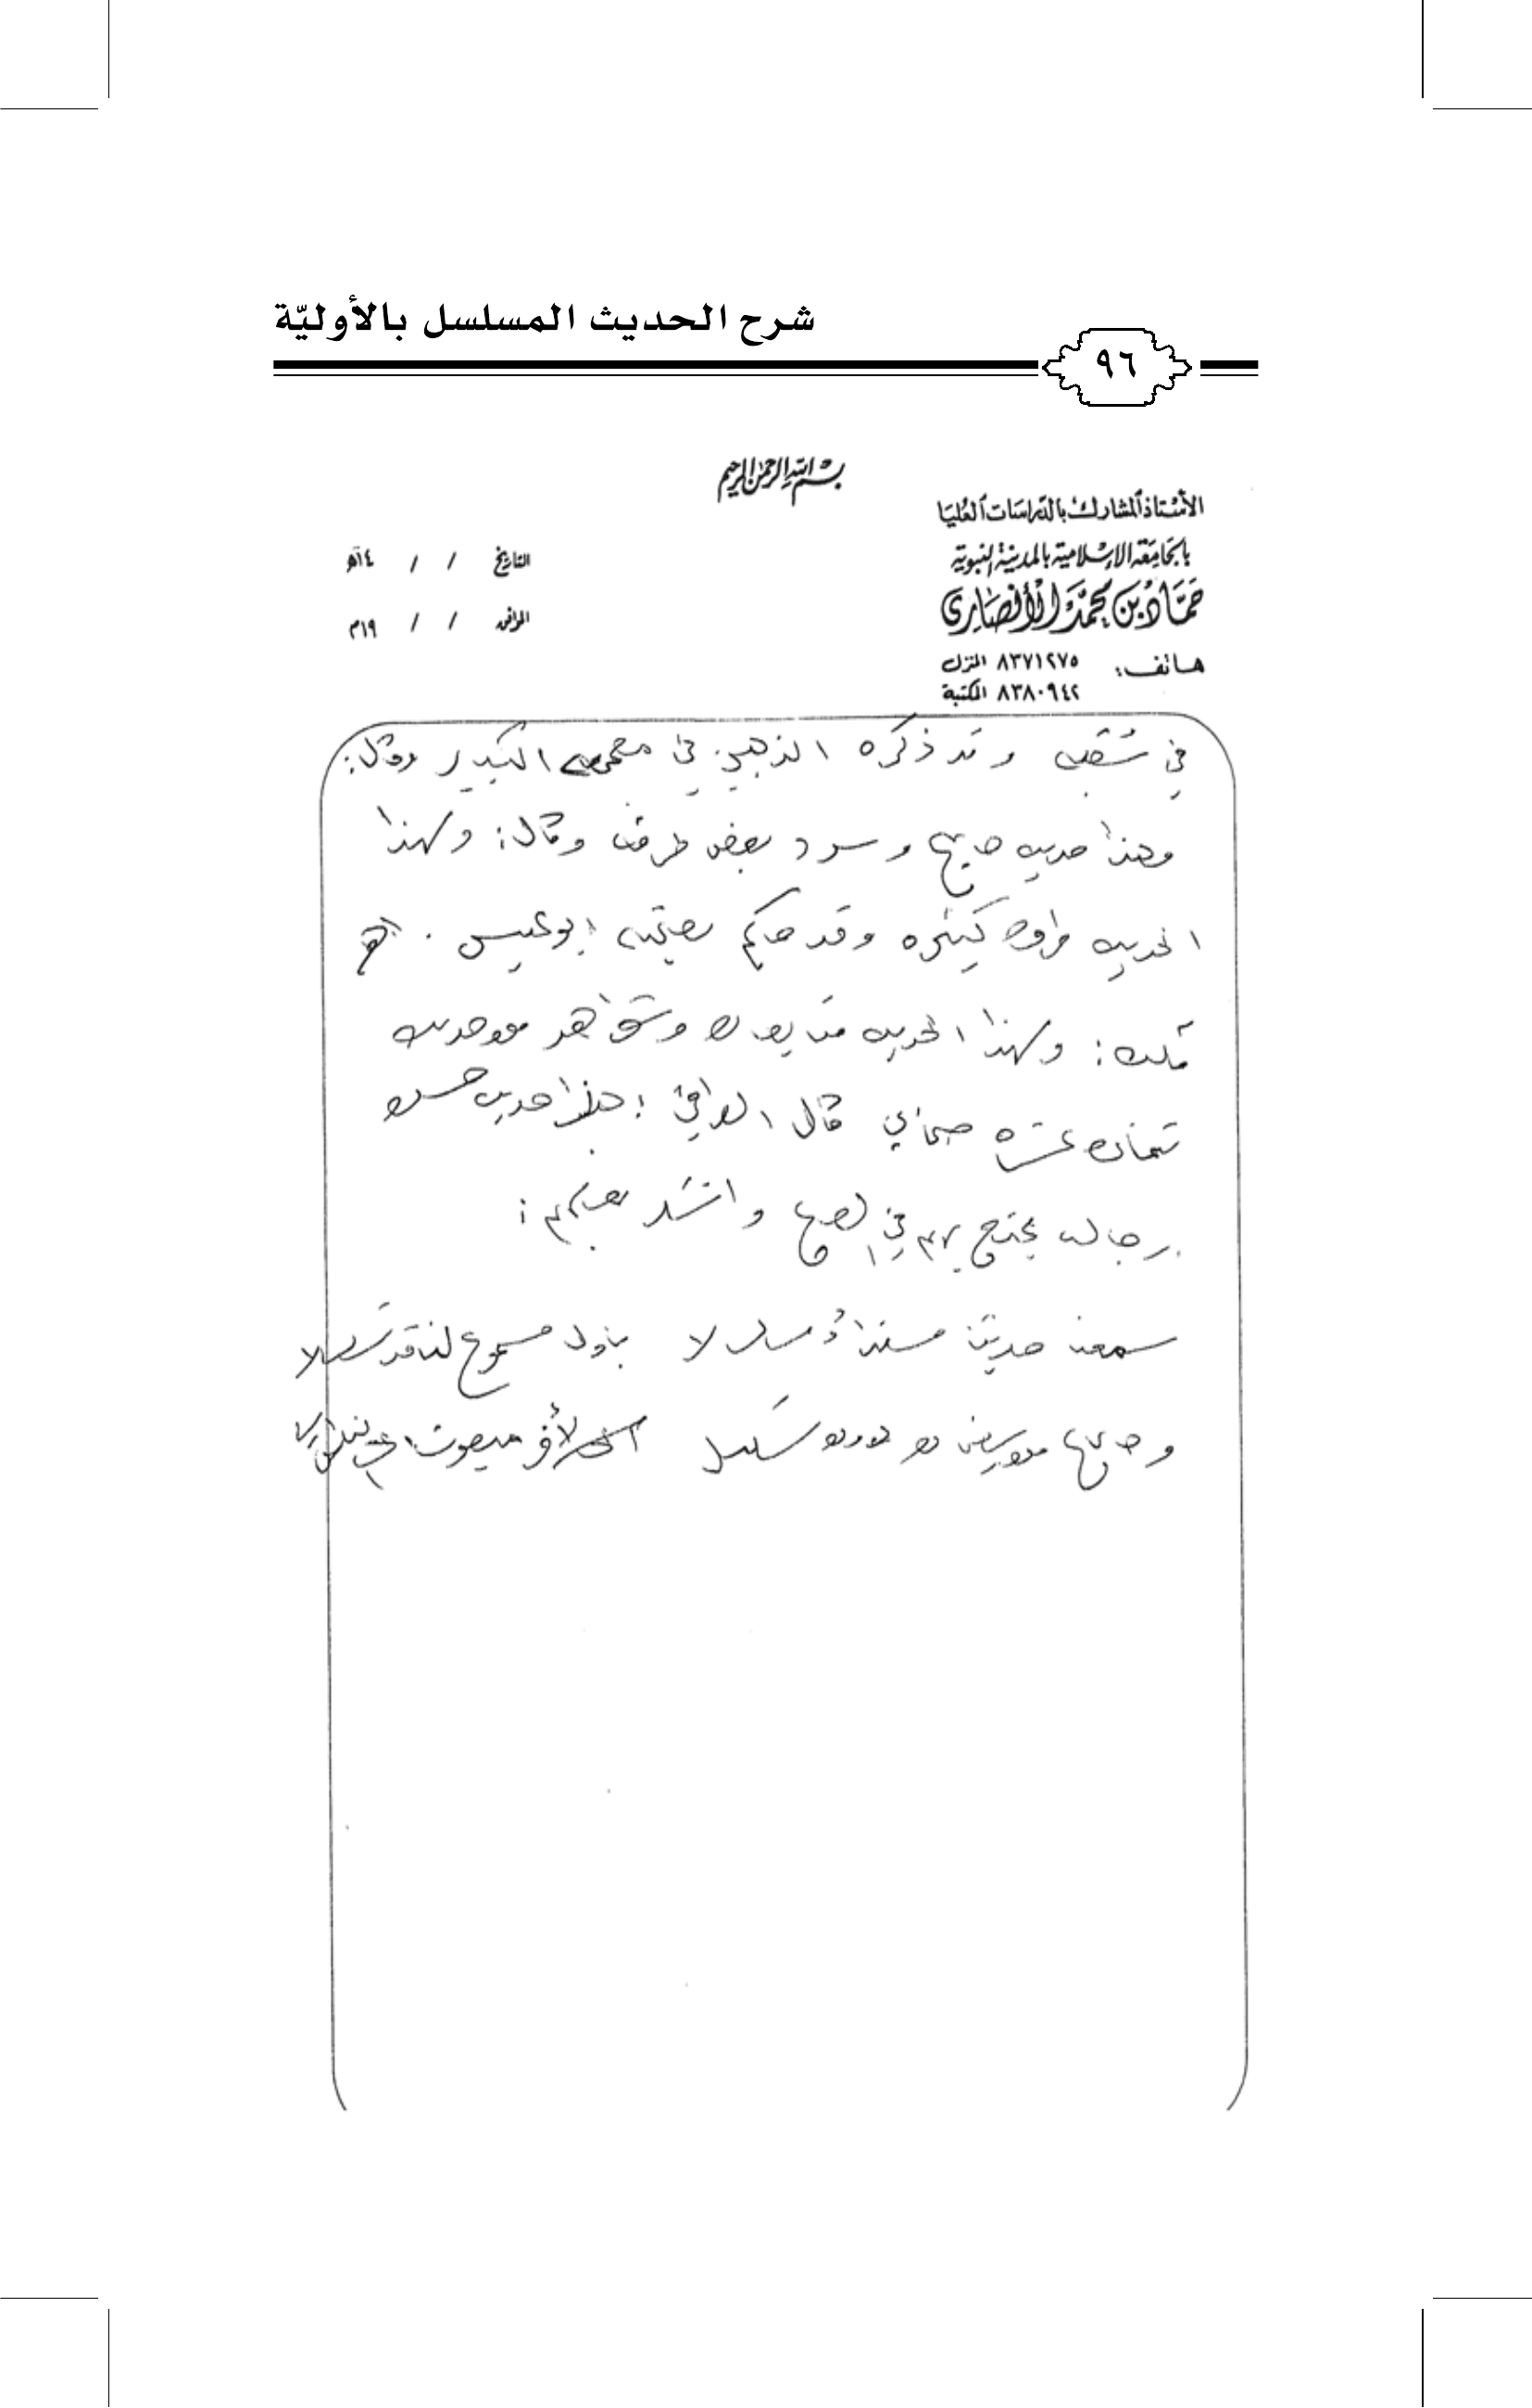 شرح الحديث المسلسل بالأوليّة
٩٦
بسم الله الرحمن الرحيم
الأستاذ المشارك بالدراسات العليا
بالجامعة الإسلامية بالمدينة النبوية
حمّاد بن محمّد الأنصاري
هاتف: ٨٣٧١٢٧٥ المنزل
٨٣٨٠٩٤٢ المكتبة
التاريخ / / ١٤هـ
الموافق / / ١٩م
في وقد ذكره الذهبي في معجمه الكبير وقال:
وهذا حديث صحيح وسرد بعض طرقه وقال: ولهذا
الحديث طرق كثيرة وقد حكم بصحته ابو عيسى . اهـ
قلت: ولهذا الحديث متابعات وشواهد من حديث
ثمانية عشرة صحابي قال العراقي: هذا حديث حسن
رجاله يحتج بهم في الصحيح وانشد بعضهم:
سمعت حديثا مسندا مسلسلا باول مسموع لنا قد تسلسلا
وصح من دون تسلسل